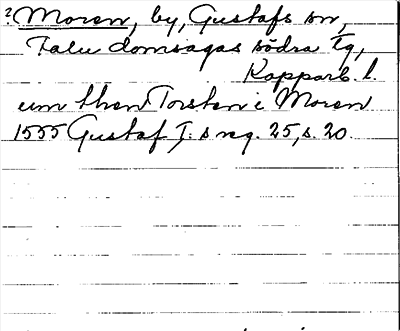 ? Moren, by, Gustafs sn,
Falu domsagas södra tg,
Kopparb. l.
um then Torsten i Moren
1555 Gustaf I:s reg. 25, s. 20.